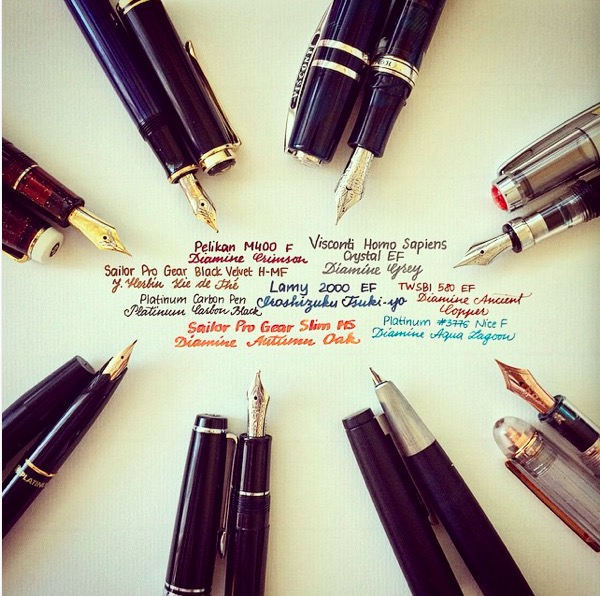 VISCONTI
Pelikan M400 F
Diamine Crimson
Visconti Homo Sapiens
Crystal EF
Diamine Grey
Sailor Pro Gear Black Velvet H-MF
J. Herbin Lie de Thé
Lamy 2000 EF
Iroshizuku Tsuki-yo
TWSBI 580 EF
Diamine Ancient
Copper
Platinum Carbon Pen
Platinum Carbon Black
Sailor Pro Gear Slim MS
Diamine Autumn Oak
Platinum #3776 Nice F
Diamine Aqua Lagoon
PLATINUM